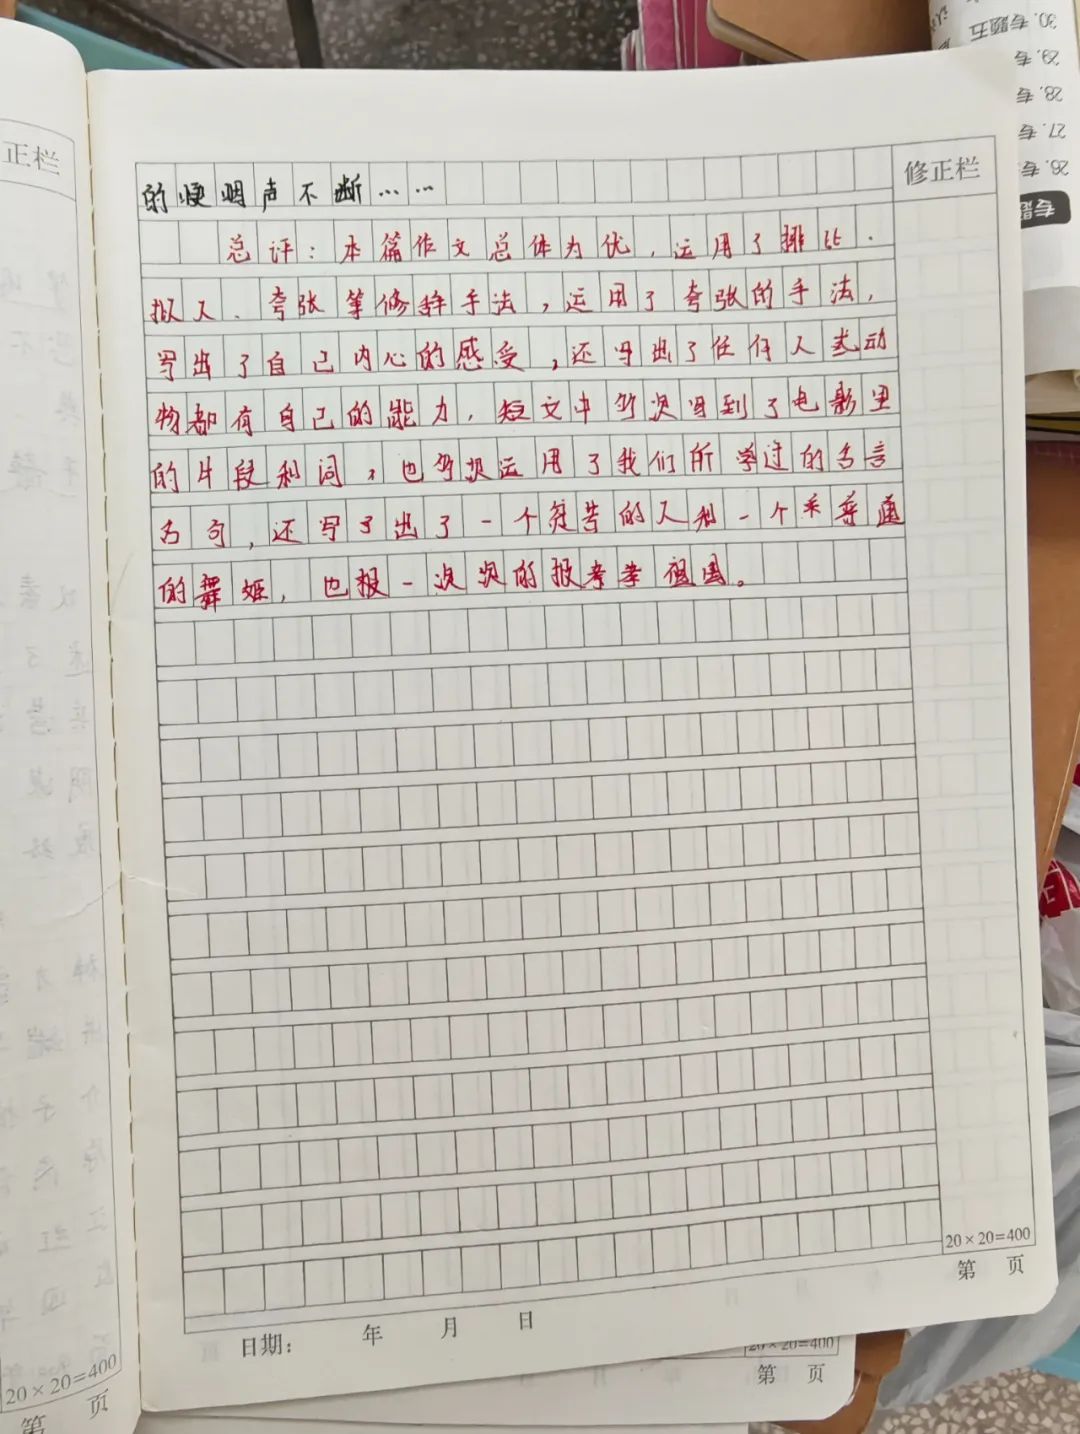 正栏
修正栏
的 声不断……
总评：本篇作文总体为优，运用了排比、
拟人、夸张等修辞手法，运用了夸张的手法，
写出了自己内心的感受，还写出了任何人或动
物都有自己的能力，短文中多次写到了电影里
的片段和词，也多次运用了我们所学过的名言
名句，还写了出了一个贫苦的人和一个平普通
的舞姬，也报一次次的报 祖国。
20×20=400
第 页
日期： 年 月 日
20×20=400
第 页
20×20=400
第 页
30.专题五
29.专
28.专
27.专
26.专
专题